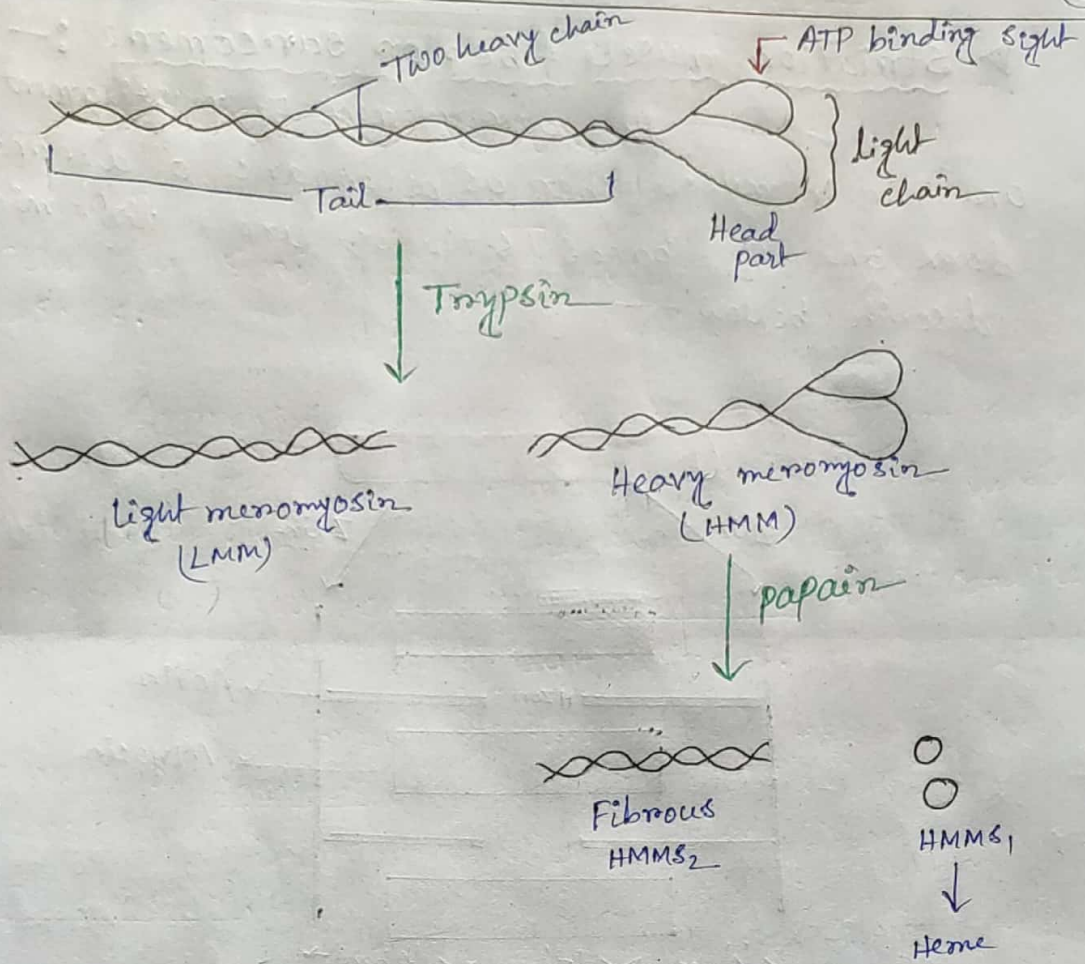 Two heavy chain
ATP binding sight
light
chain
Tail
Head
part
Trypsin
Light meromyosin
(LMM)
Heavy meromyosin
(HMM)
papain
Fibrous
HMMS2
HMMS1
Heme